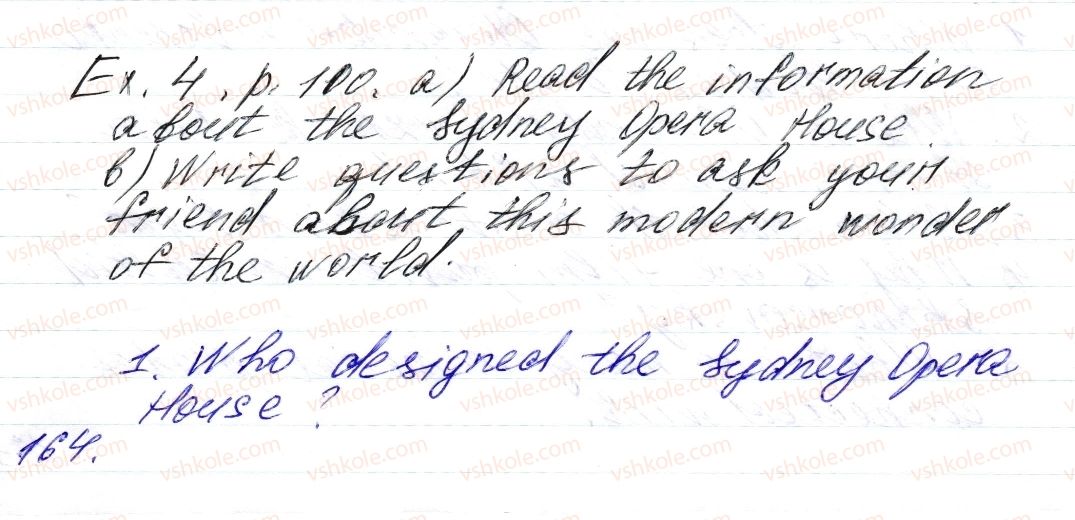 Ex. 4, p. 100. a) Read the information
about the Sydney Opera House
b) Write questions to ask your
friend about this modern wonder
of the world.
1. Who designed the Sydney Opera
House?
164.